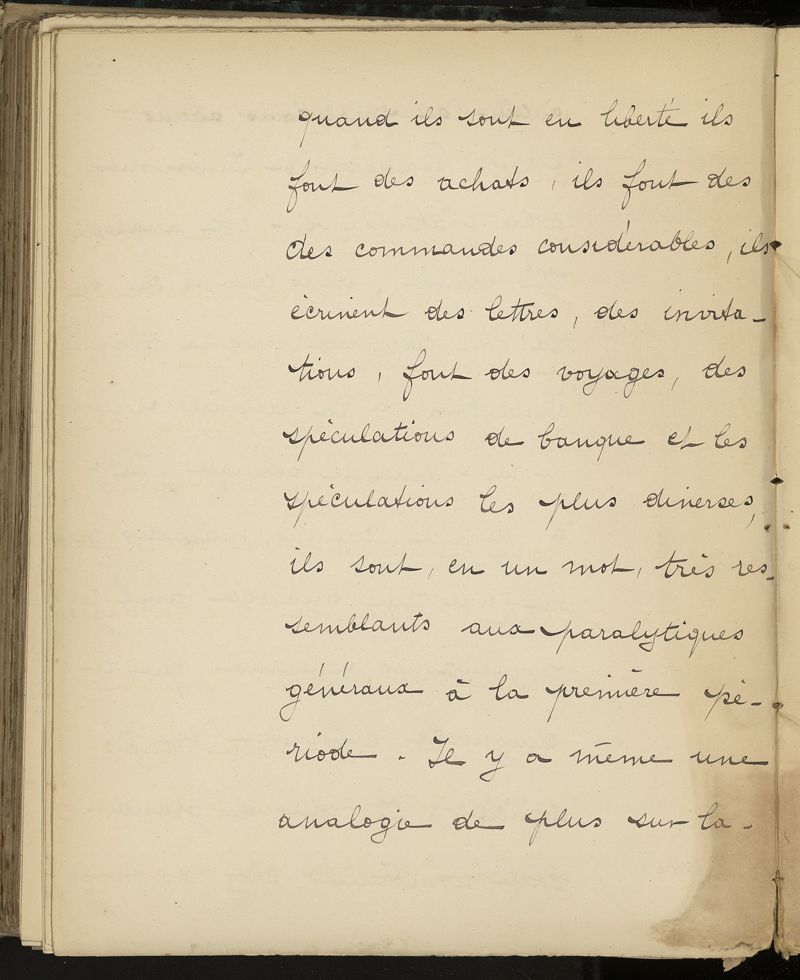 quand ils sont en liberté ils
font des achats, ils font des
des commandes considérables, ils
écrivent des lettres, des invita-
tions, font des voyages, des
spéculations de banque et les
spéculations les plus diverses,
ils sont, en un mot, très res-
semblants aux paralytiques
généraux à la première pé-
riode. Il y a même une
analogie de plus sur la-